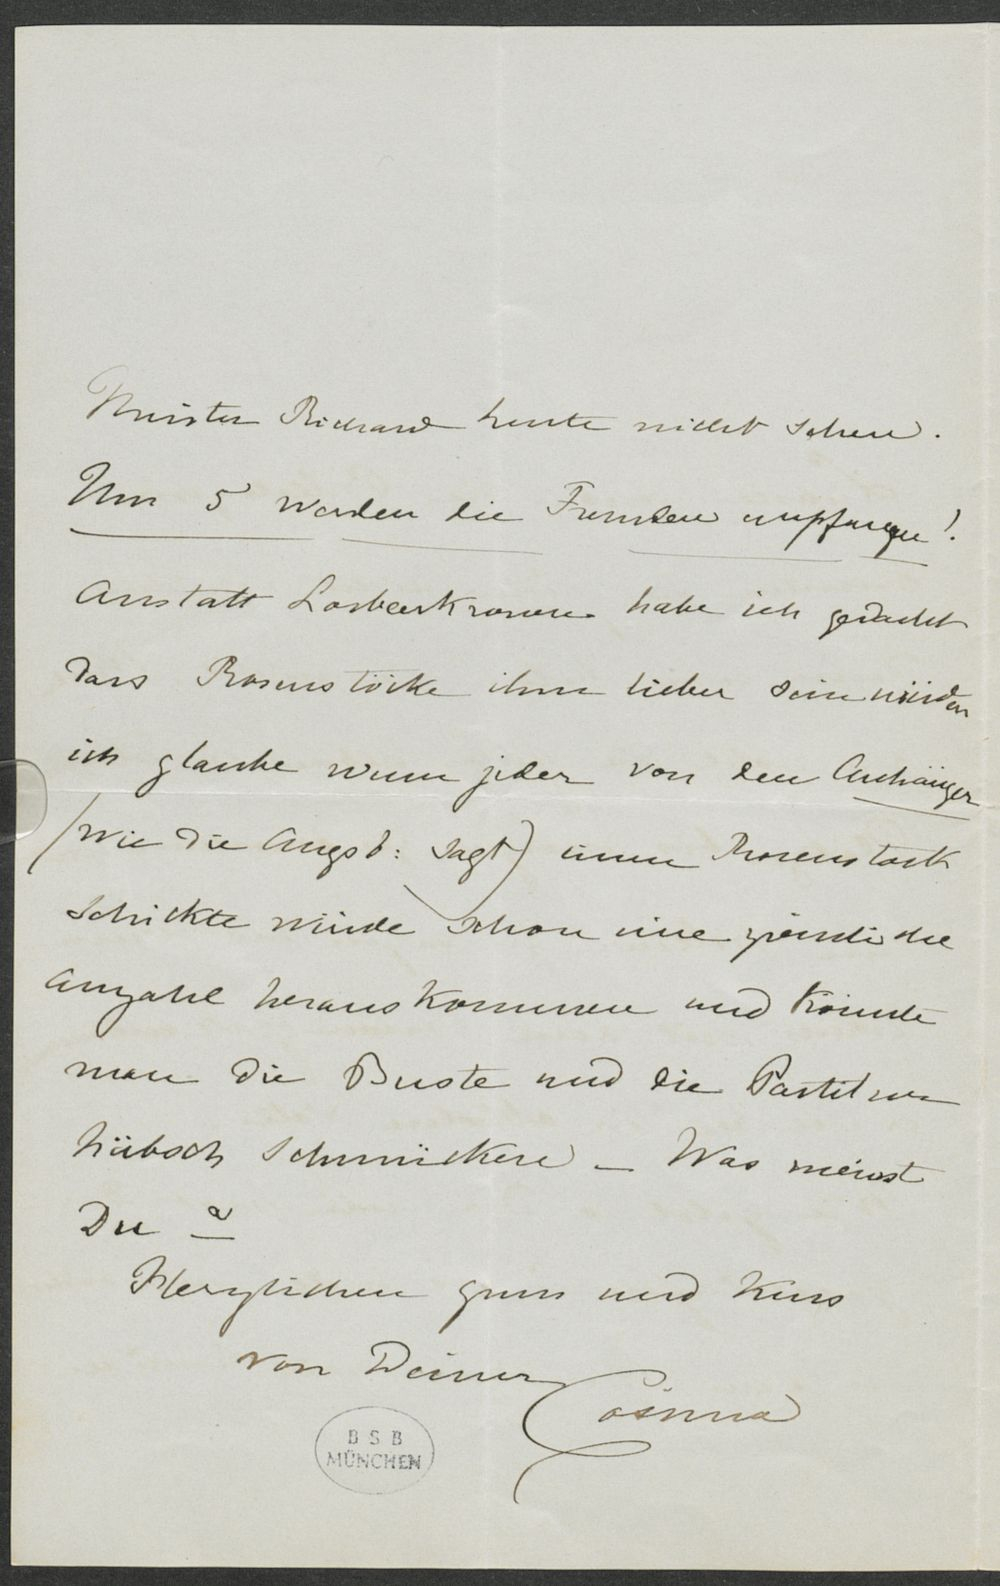 Meister Richard heute nicht sehen.
Um 5 werden die Fremden empfangen!
Anstatt Lorbeerkronen habe ich gedacht
dass Rosenstöcke ihm lieber sein würden
ich glaube wenn jeder von den Anhänger
(wie die Augsb: sagt) einen Rosenstock
schickte würde schon eine ziemliche
Anzahl herauskommen und könnte
man die Buste und die Partituren
hübsch schmücken – Was meinst
Du ?
Herzlichen gruss und Kuss
von Deiner Cosima
B S B
MÜNCHEN